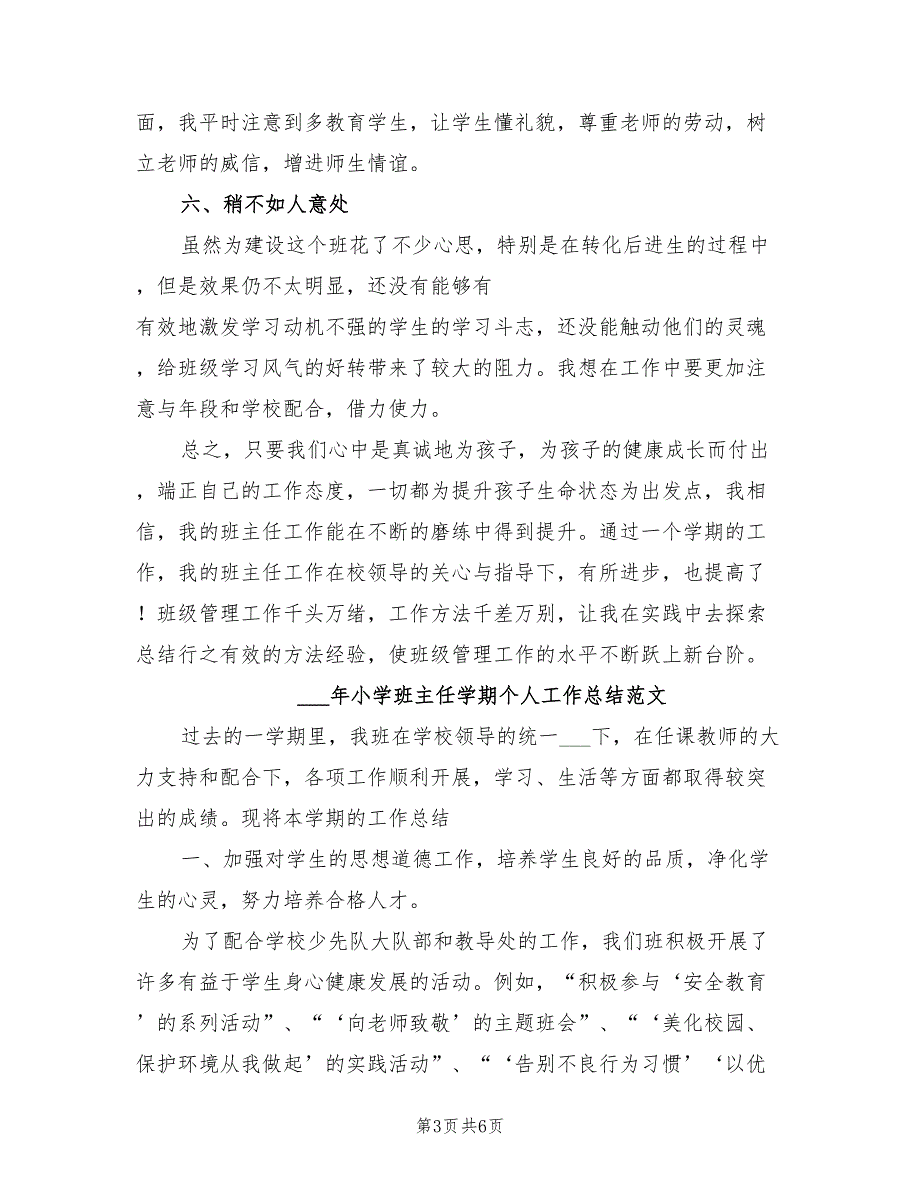 面，我平时注意到多教育学生，让学生懂礼貌，尊重老师的劳动，树
立老师的威信，增进师生情谊。
六、稍不如人意处
虽然为建设这个班花了不少心思，特别是在转化后进生的过程中
，但是效果仍不太明显，还没有能够有
有效地激发学习动机不强的学生的学习斗志，还没能触动他们的灵魂
，给班级学习风气的好转带来了较大的阻力。我想在工作中要更加注
意与年段和学校配合，借力使力。
总之，只要我们心中是真诚地为孩子，为孩子的健康成长而付出
，端正自己的工作态度，一切都为提升孩子生命状态为出发点，我相
信，我的班主任工作能在不断的磨练中得到提升。通过一个学期的工
作，我的班主任工作在校领导的关心与指导下，有所进步，也提高了
！班级管理工作千头万绪，工作方法千差万别，让我在实践中去探索
总结行之有效的方法经验，使班级管理工作的水平不断跃上新台阶。
___年小学班主任学期个人工作总结范文
过去的一学期里，我班在学校领导的统一___下，在任课教师的大
力支持和配合下，各项工作顺利开展，学习、生活等方面都取得较突
出的成绩。现将本学期的工作总结
一、加强对学生的思想道德工作，培养学生良好的品质，净化学
生的心灵，努力培养合格人才。
为了配合学校少先队大队部和教导处的工作，我们班积极开展了
许多有益于学生身心健康发展的活动。例如，“积极参与‘安全教育
’的系列活动”、“‘向老师致敬’的主题班会”、“‘美化校园、
保护环境从我做起’的实践活动”、“‘告别不良行为习惯’‘以优
第3页共6页